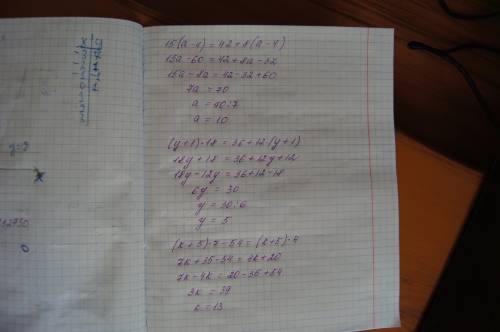 y=9
x
12730
0
15(a-4)=42+8(a-4)
15a-60=42+8a-32
15a-8a=42-32+60
7a=70
a=70:7
a=10
(y+1)·18=36+12·(y+1)
18y+18=36+12y+12
18y-12y=36+12-18
6y=30
y=30:6
y=5
(k+5)·7-54=(k+5)·4
7k+35-54=4k+20
7k-4k=20-35+54
3k=39
k=13